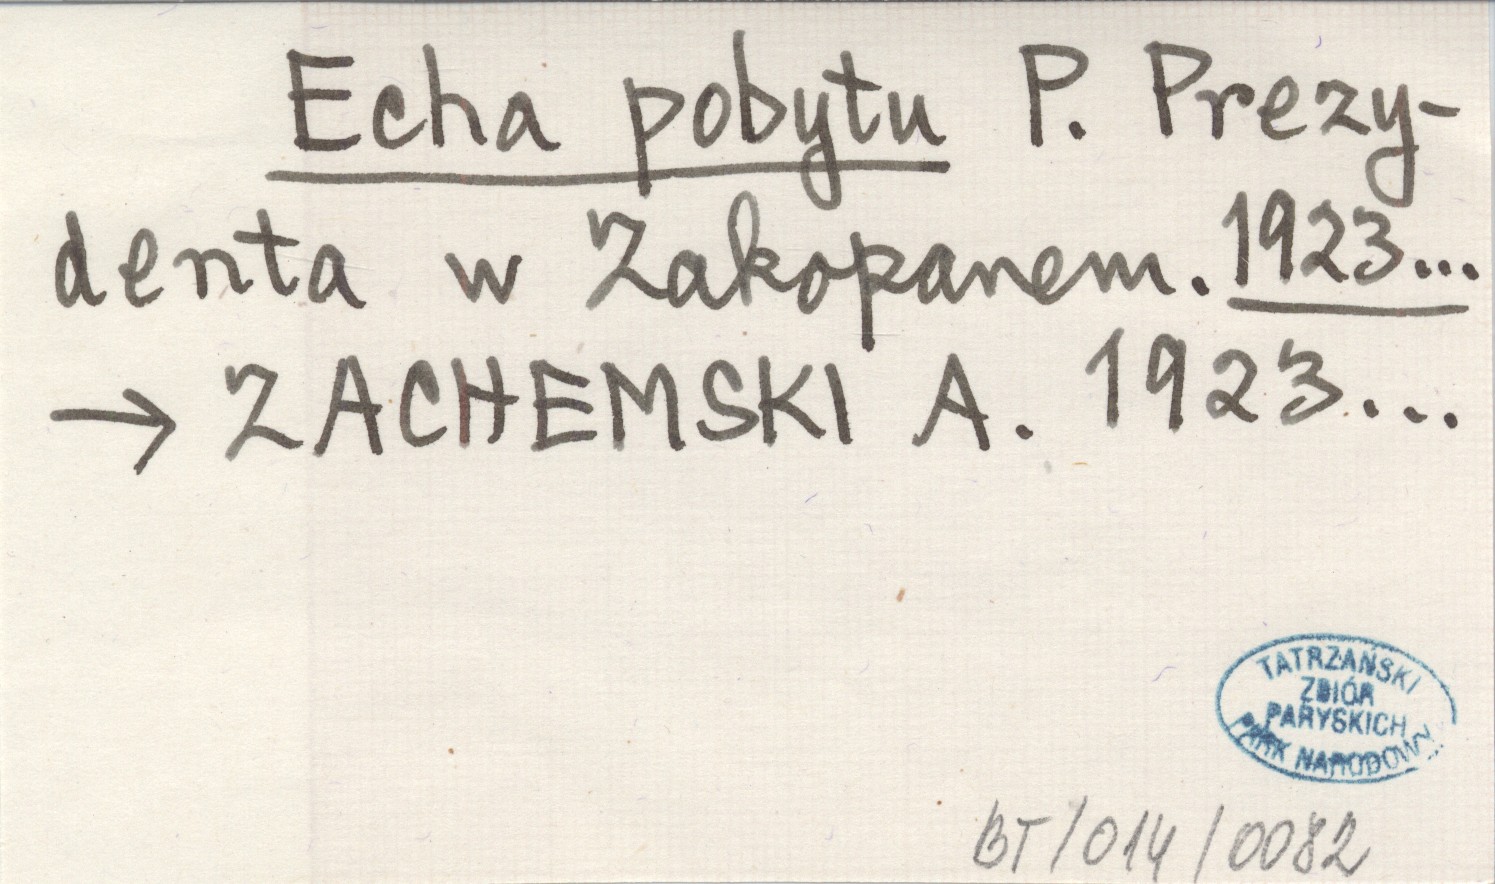 Echa pobytu P. Prezy-
denta w Zakopanem. 1923...
→ ZACHEMSKI A. 1923...
TATRZAŃSKI
ZBIÓR
PARYSKICH
PARK NARODOWY
BT/014/0082